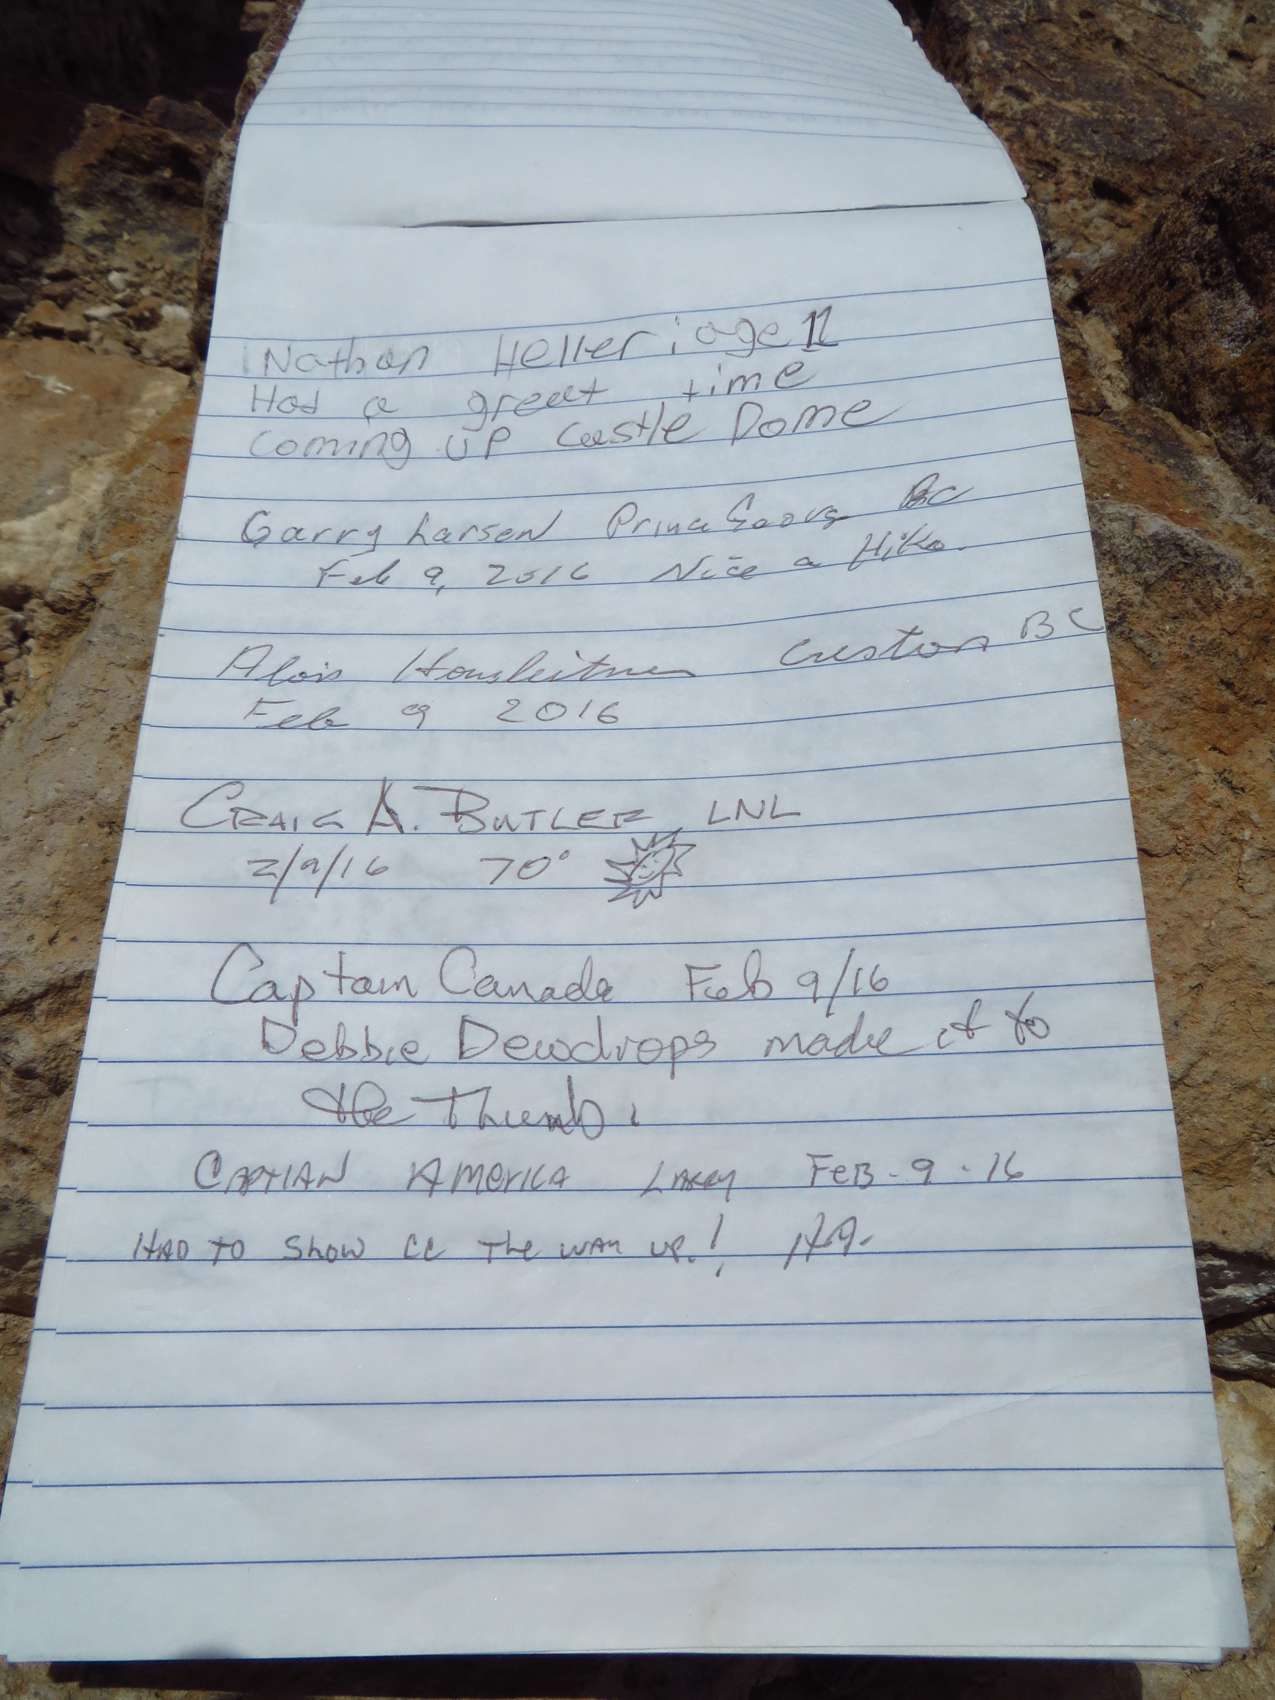 Nathan Heller; age 11
Had a great time
coming up Castle Dome
Garry Larsen Prince George BC
Feb 9, 2016 Nice a Hike.
Alois Creston BC
Feb 9 2016
CRAIG A. BUTLER LNL
2/9/16 70°
Captain Canada Feb 9/16
Debbie Dewdrops made it to
the Thumb!
CAPTIAN AMERICA FEB-9-16
HAD TO SHOW CC THE WAY UP!